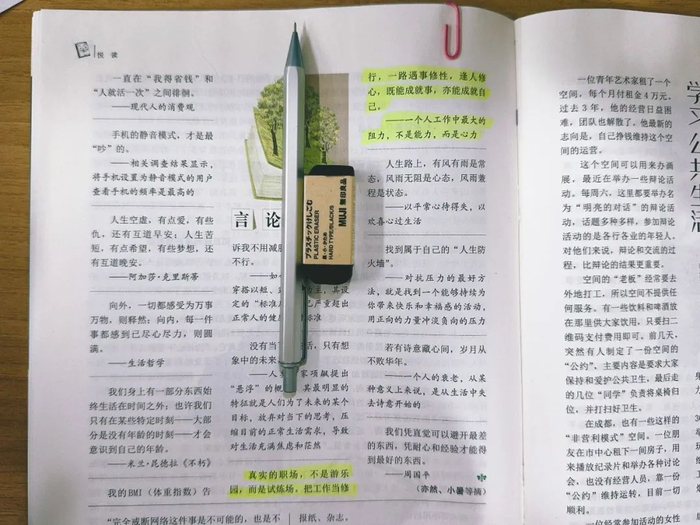 悦 读
一直在“我得省钱”和
“人就活一次”之间徘徊。
——现代人的消费观
手机的静音模式，才是最
“吵”的。
——相关调查结果显示，
将手机设置为静音模式的用户
查看手机的频率是最高的
人生空虚，有点爱，有些
仇，还有互道早安；人生苦
短，有点希望，有些梦想，还
有互道晚安。
——阿加莎·克里斯蒂
向外，一切都感受为万事
万物，则释然；向内，每一件
事都感到已尽心尽力，则圆
满。
——生活哲学
我们身上有一部分东西始
终生活在时间之外；也许我们
只有在某些特定时刻——大部
分是没有年龄的时刻——才会
意识到自己的年龄。
——米兰·昆德拉《不朽》
我的BMI（体重指数）告
言 论
诉我不用减
不行。
——如
穿搭以短、
定的“标准
正常人的健
标准
没有当
活，只有想
象中的未来
——人
家项飙提出
“悬浮”的概
其最明显的
特征就是人们为了未来的某个
目标，放弃对当下的思考，压
缩目前的正常生活需求，导致
对生活充满焦虑和茫然
真实的职场，不是游乐
园，而是试炼场，把工作当修
行，一路遇事修性，逢人修
心，既能成就事，亦能成就自
己。
——一个人工作中最大的
阻力，不是能力，而是心力
人生路上，有风有雨是常
态，风雨无阻是心态，风雨兼
程是状态。
——以平常心待得失，以
欢喜心过生活
找到属于自己的“人生防
火墙”。
——对抗压力的最好方
法，就是找到一个能够持续为
你带来快乐和幸福的活动，
用正向的力量冲淡负向的压力
若有诗意藏心间，岁月从
不败华年。
——一个人的衰老，从某
种意义上来说，是从生活中失
去诗意开始的
我们凭直觉可以避开最差
的东西，凭耐心和经验才能得
到最好的东西。
——周国平
（亦然、小暑等摘）
プラスチックけしごむ
PLASTIC ERASER
黒・小・かため
HARD TYPE/BLACK/S
MUJI 無印良品
一位青年艺术家租了一个
空间，每个月付租金4万元，
过去3年，他的经营日益困
难，团队也解散了。他最新的
志向是，自己挣钱维持这个空
间的运营。
这个空间可以用来办画
展，最近在举办一些辩论活
动。每周六，这里都要举办名
为“明亮的对话”的辩论活
动，话题多种多样，参加辩论
活动的是各行各业的年轻人，
对他们来说，辩论和交流的过
程，比辩论的结果更重要。
空间的“老板”经常要去
外地打工，所以空间不提供任
何服务。有一些饮料和啤酒放
在那里供大家饮用，只要扫二
维码支付费用即可。前几天，
突然有人制定了一份空间的
“公约”，主要内容是要求大家
保持和爱护公共卫生，最后走
的几位“同学”负责将桌椅归
位，并打扫好卫生。
在成都，也有一些这样的
“非营利模式”空间。一位朋
友在市中心租下一间房子，用
来播放纪录片和举办各种讨论
会，也没有经营人员，靠一份
“公约”维持运转，目前一切
顺利。
一位经常参加活动的女性
学习公共生活
“完全戒断网络这件事是不可能的，也是不
报纸、杂志。